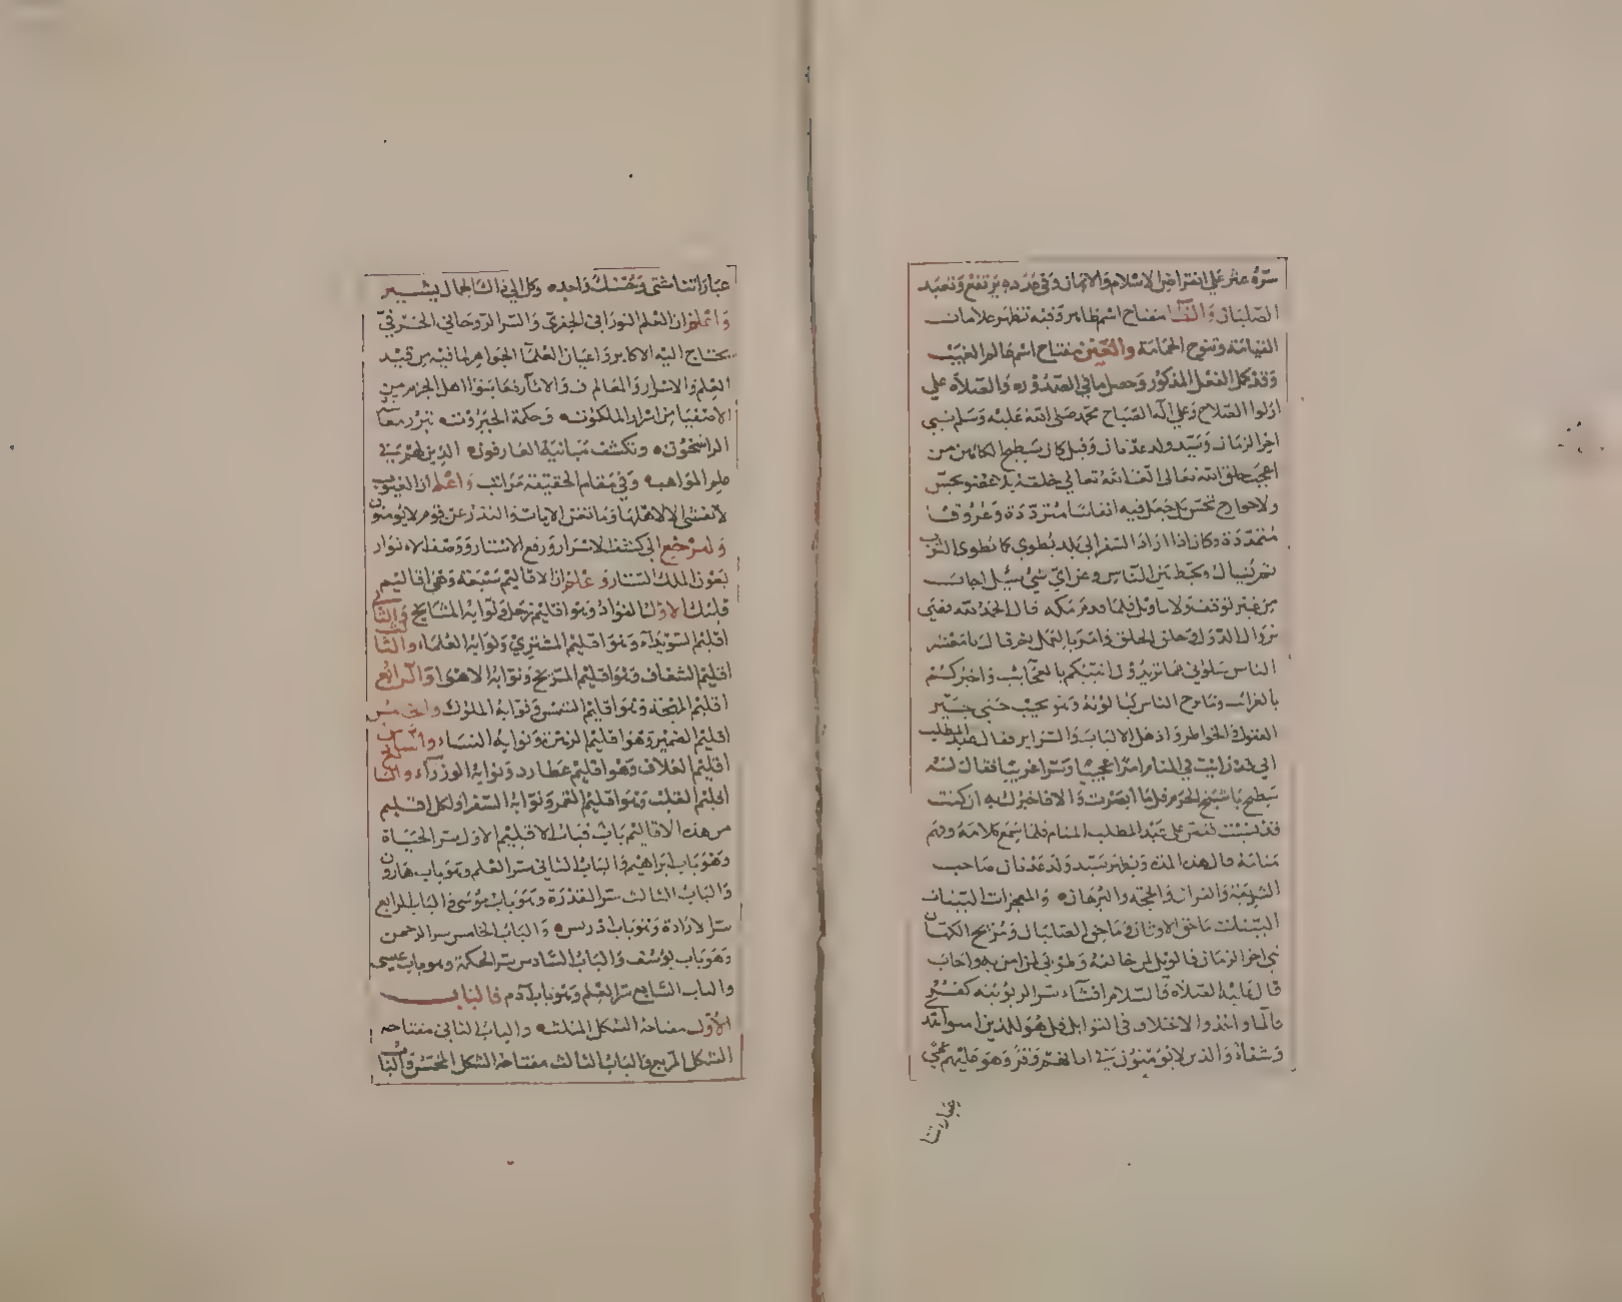 سره عثر على انقراض الاسلام والايمان وفى عدده يرتفع وتعبد
الصلبان والظا مفتاح اسم ظاهر وفيه تظهر علامات
القيامة وتنوح الحمامة والغين مفتاح اسم عالم الغيب
وقد كمل الفعل المذكور وحصل ما في الصدوره والصلاه على
اولوا الصلاح وعلى اله الصباح محمد صلى الله عليه وسلم نبي
اخر الزمان وسيد ولد عدنان وقيل كان سطيح الكاهن من
اعجب خلق الله تعالى انشاه الله تعالى خلقه بلا عضو يحبس
ولا جوارح تحس بل جعل فيه انفاسا متردده وعروق
متمددة وكان اذا اراد السفر الى بلد يطوى كما يطوى الثوب
بين الناس وعن اي شي سيل اجاب
من غير توقف ولا تاويل فلما قدم مكه قال الحمد لله
الناس سلوني عما تريدون انبيكم بالعجايب واخبركم
بالغرائب الناس
العقول والخواطر واذهل الالباب والسراير فقال عبد المطلب
اني قد رايت في المنام امرا عجيبا وسرا غريبا فقال له
سطيح يا شيخ الحرم قل ما ابصرت والا فاخبرك به ان كنت
قد نسيت فقص على عبد المطلب المنام فلما سمع كلامه وفهم
منامه قال هذا ويظهر سيد ولد عدنان صاحب
الشريعة والقران والحجه والبرهان والمعجزات البينات
ماحى الاوثان وماحى الصلبان
نبي اخر الزمان فالويل لمن خالفه وطوبى لمن امن به واجاب
قال عليه الصلاه والسلام افشاء سر الربوبيه كفر
قل هو للذين امنوا هدى
وشفاء والذين لا يومنون في اذانهم وقر وهو عليهم عمى
عباراتنا
عباراتنا شتى وحسنك واحد وكل الى ذاك الجمال يشير
واعلم ان العلم النورانى الجفرى والسر الروحاني الحرفي
يحتاج اليه الاكابر واعيان العلما الجواهر لما فيه من قيد
العلم والاسرار
الاصفيا من اسرار الملكوت وحكمة الجبروت
الراسخون وتكشف مبانيه العارفون الذين لهم في
علم المواهب وفي مقام الحقيقه مراتب واعلم ان الغيوب
لا تفشى الا لاهلها وما تغنى الايات والنذر عن قوم لا يومنون
ولنرجع الى كشف الاسرار ورفع الاستار ووصف الانوار
بعون الملك الستار وعلم ان الاقاليم سبعه وهى اقاليم
قلبك الاول الفواد وهو اقليم زحل ونوابه المشايخ والثانى
اقليم السويداء وهو اقليم المشترى ونوابه العلماء والثالث
اقليم الشغاف وهو اقليم المريخ ونوابه الاهوا والرابع
اقليم المهجه وهو اقليم الشمس ونوابه الملوك والخامس
اقليم الضمير وهو اقليم الزهره ونوابه النساء والسادس
اقليم الغلاف وهو اقليم عطارد ونوابه الوزراء والسابع
اقليم القلب وهو اقليم القمر ونوابه السفرا ولكل اقليم
من هذه الاقاليم باب فباب الاقليم الاول سر الحياة
وهو باب ابراهيم والباب الثانى سر العلم وهو باب هارون
والباب الثالث سر القدرة وهو باب موسى والباب الرابع
سر الارادة وهو باب ادريس والباب الخامس سر الرحمن
وهو باب يوسف والباب السادس سر الحكمة وهو باب عيسى
والباب السابع سر العلم وهو باب آدم فالباب
الاول مفتاحه الشكل المثلث والباب الثانى مفتاحه
الشكل المربع والباب الثالث مفتاحه الشكل المخمس والباب